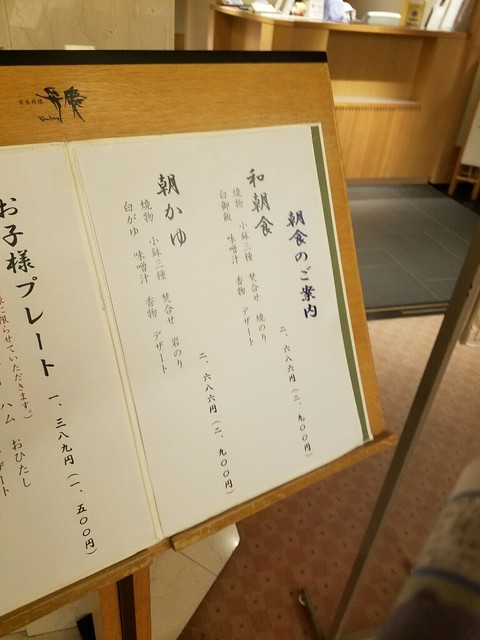 朝食のご案内
和朝食
二、六八六円(二、九〇〇円)
焼物 小鉢三種 焚合せ 焼のり
白御飯 味噌汁 香物 デザート
朝かゆ
二、六八六円(二、九〇〇円)
焼物 小鉢三種 焚合せ 岩のり
白がゆ 味噌汁 香物 デザート
お子様プレート
一、三八九円(一、五〇〇円)
に限らせていただきます。)
ハム おひたし